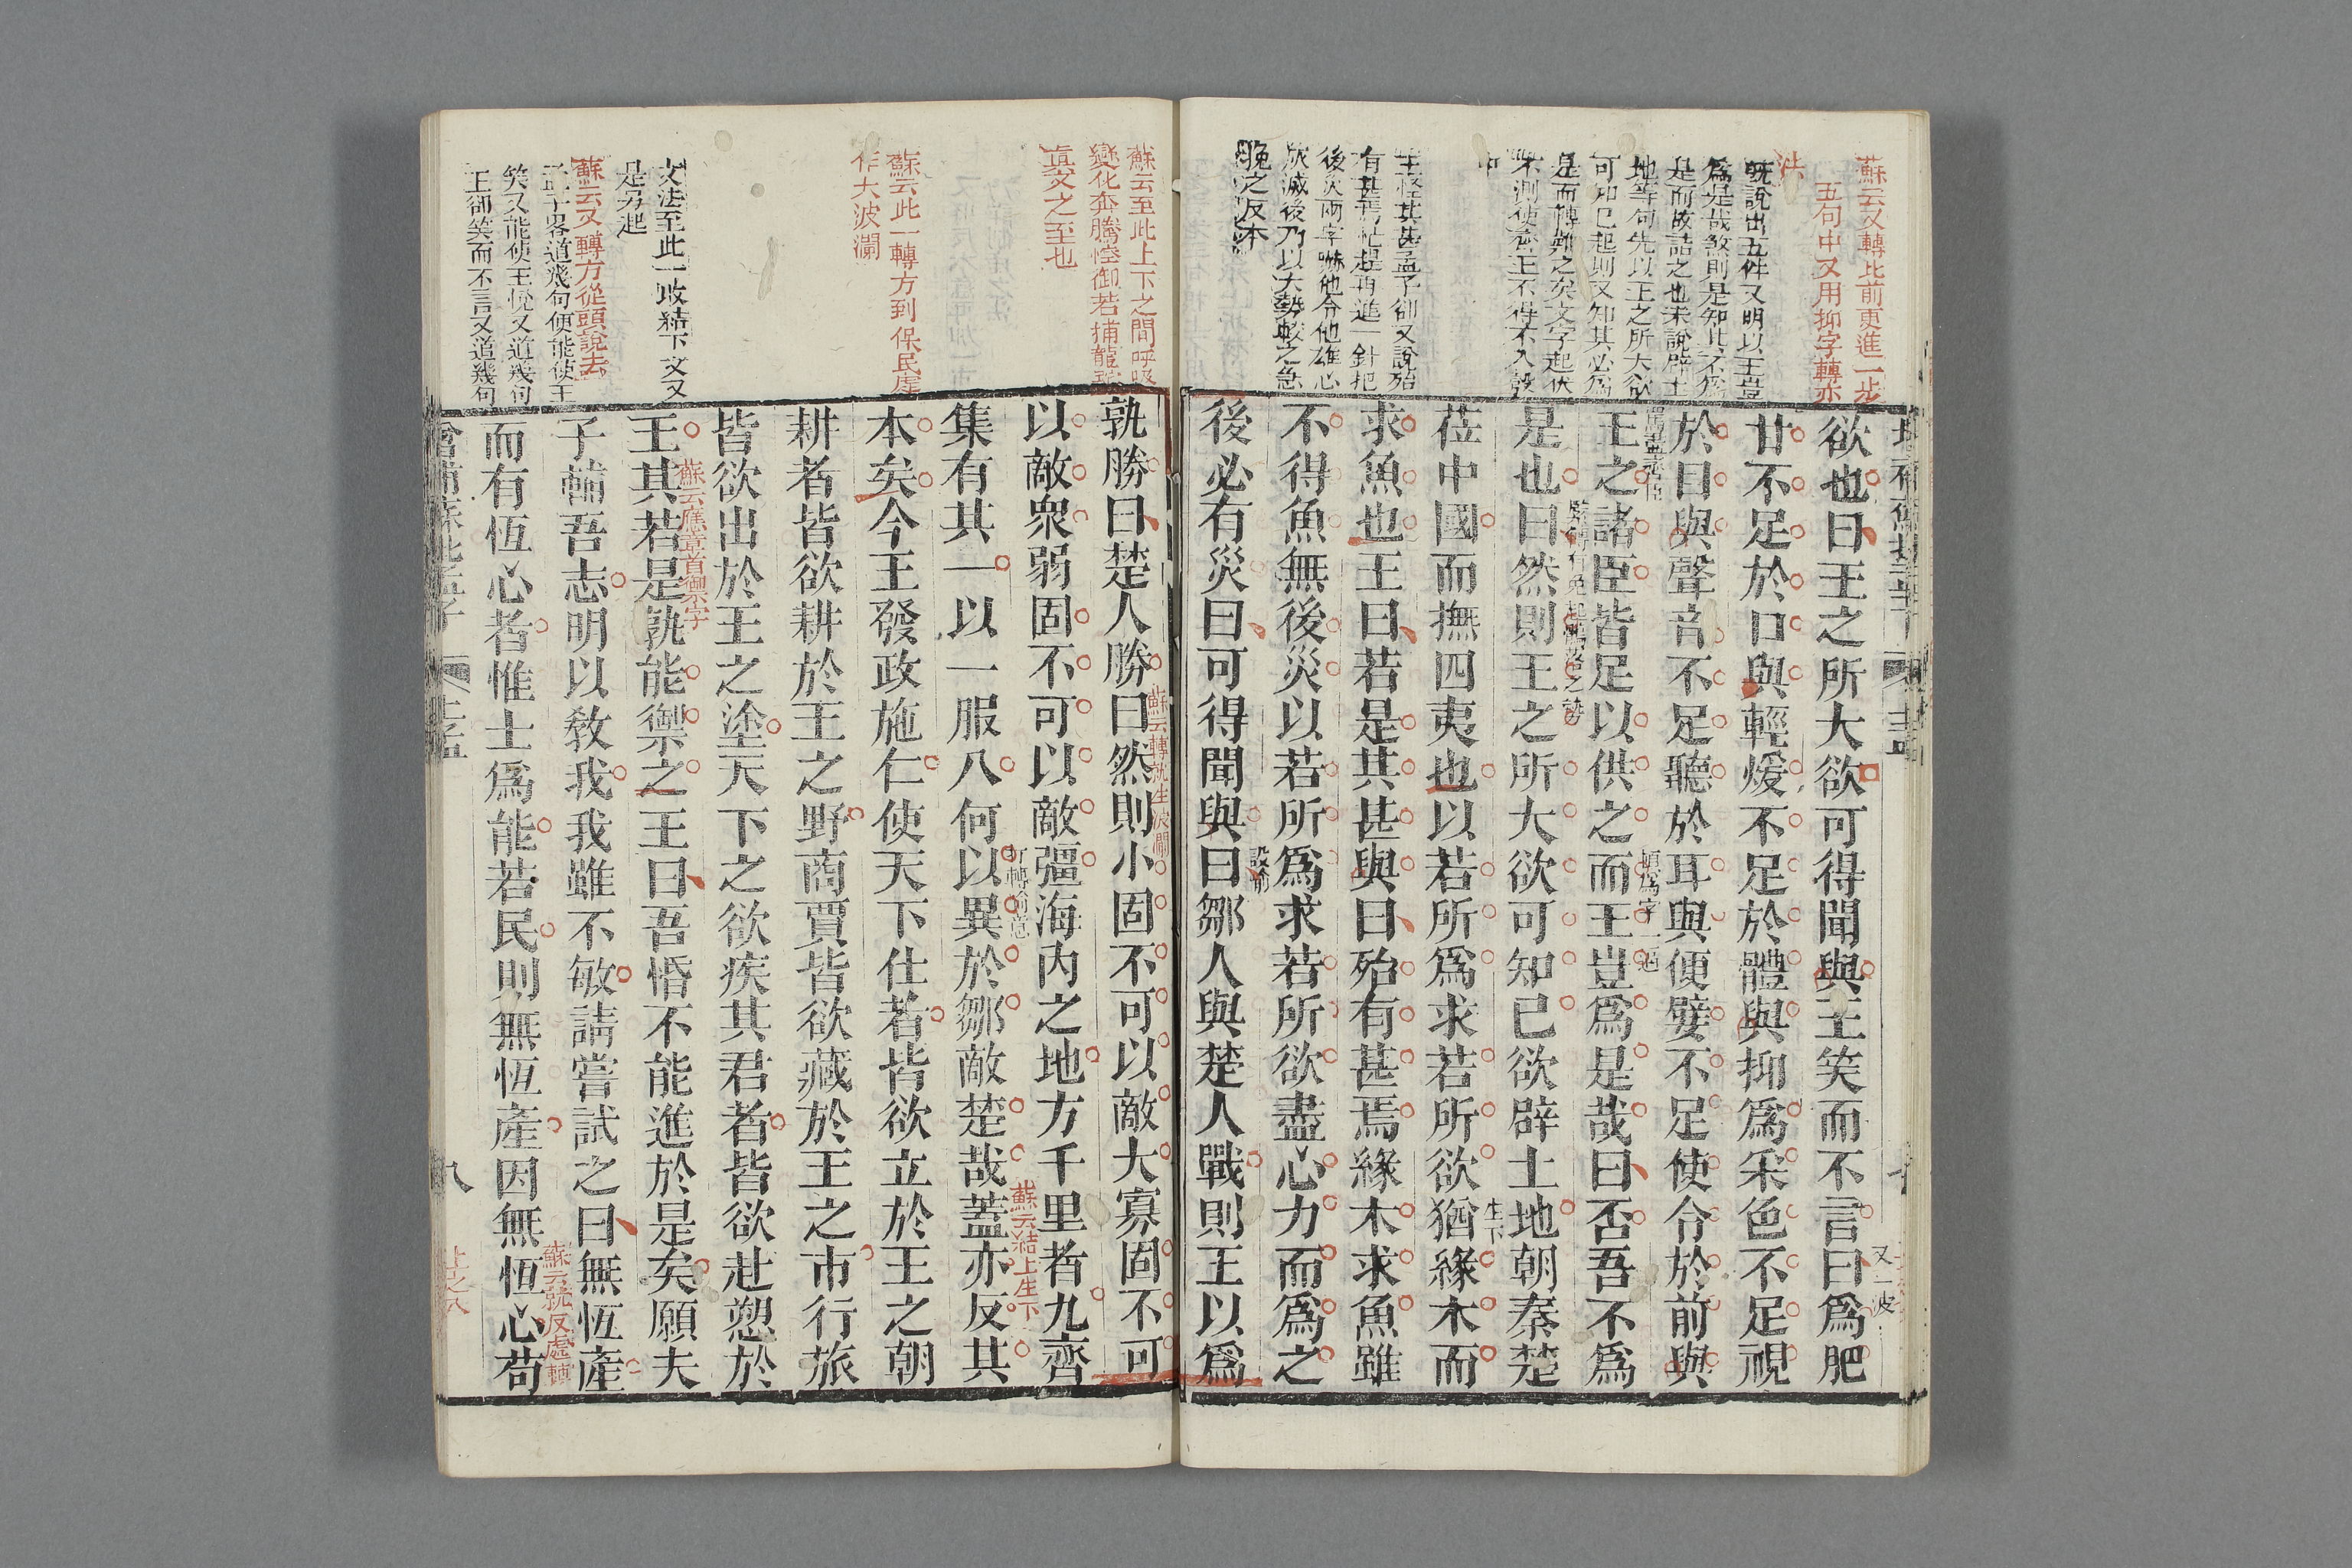 蘇云又轉比前更進一步
五句中又用抑字轉亦
法
既說出五件又明以王豈
爲是哉煞則是知其不爲
是而故詰之也未說辟土
地等句先以王之所大欲
可知已起則又知其必爲
是而轉煞之矣文字起伏
不測使齊王不得不入彀
中
王怪其甚孟子卻又說殆
有甚焉壯趕再進一針把
後災兩字嚇他令他雄心
灰滅後乃以大勢較之急
晚之反本
欲也曰王之所大欲可得聞與王笑而不言曰爲肥
又一波
甘不足於口與輕煖不足於體與抑爲采色不足視
於目與聲音不足聽於耳與便嬖不足使令於前與
王之諸臣皆足以供之而王豈爲是哉曰否吾不爲
是也曰然則王之所大欲可知已欲辟土地朝秦楚
莅中國而撫四夷也以若所爲求若所欲猶緣木而
生下
求魚也王曰若是其甚與曰殆有甚焉緣木求魚雖
不得魚無後災以若所爲求若所欲盡心力而爲之
後必有災曰可得聞與曰鄒人與楚人戰則王以爲
設喻
蘇云至此上下之間呼吸
變化奔騰控御若捕龍蛇
真文之至也
蘇云此一轉方到保民處
作大波瀾
文法至此一收結下文又
是另起
蘇云又轉方從頭說去
孟子畧道幾句便能使王
笑又能使王悅又道幾句
王卻笑而不言又道幾句
孰勝曰楚人勝曰然則小固不可以敵大寡固不可
蘇云轉就生波瀾
以敵衆弱固不可以敵彊海內之地方千里者九齊
集有其一以一服八何以異於鄒敵楚哉蓋亦反其
打轉前意
蘇云結上生下
本矣今王發政施仁使天下仕者皆欲立於王之朝
耕者皆欲耕於王之野商賈皆欲藏於王之市行旅
皆欲出於王之塗天下之欲疾其君者皆欲赴愬於
王其若是孰能禦之王曰吾惛不能進於是矣願夫
蘇云應章首禦字
子輔吾志明以敎我我雖不敏請嘗試之曰無恆產
而有恆心者惟士爲能若民則無恆產因無恆心苟
蘇云就反處轉
八
上之八